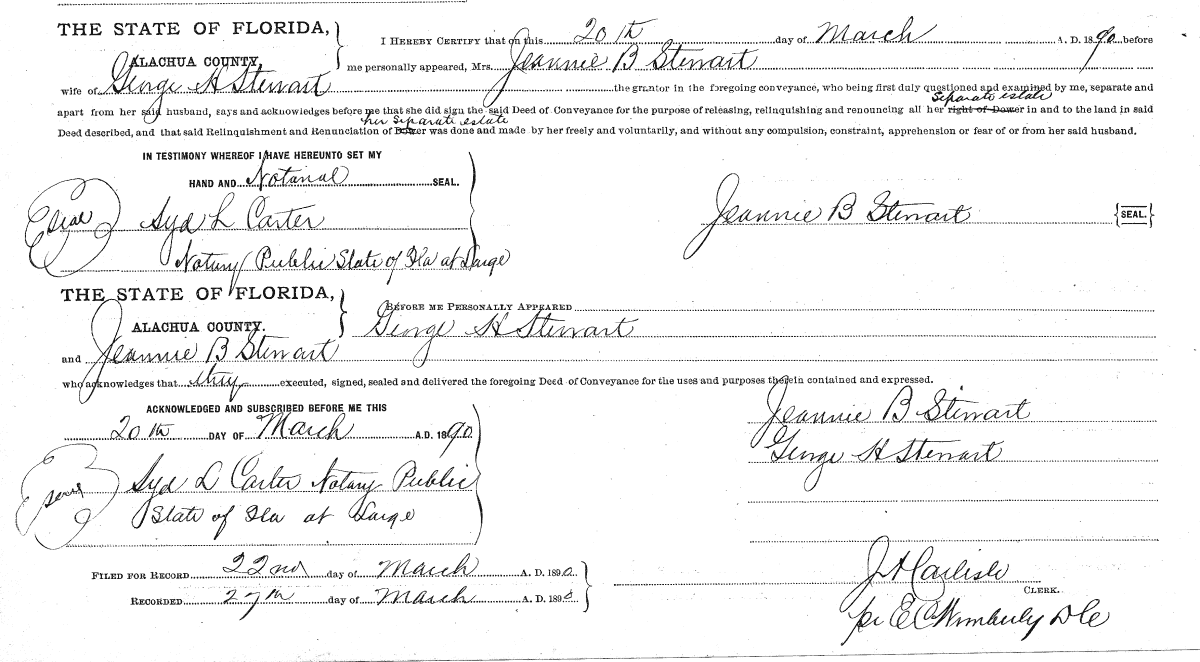 THE STATE OF FLORIDA,
ALACHUA COUNTY,
I HEREBY CERTIFY that on this 20th day of March A. D. 1890 before
me personally appeared, Mrs. Jeannie B Stewart
wife of George H Stewart the grantor in the foregoing conveyance, who being first duly questioned and examined by me, separate and
separate estate
apart from her said husband, says and acknowledges before me that she did sign the said Deed of Conveyance for the purpose of releasing, relinquishing and renouncing all her right of Dower in and to the land in said
her separate estate
Deed described, and that said Relinquishment and Renunciation of Dower was done and made by her freely and voluntarily, and without any compulsion, constraint, apprehension or fear of or from her said husband.
IN TESTIMONY WHEREOF I HAVE HEREUNTO SET MY
HAND AND Notarial SEAL.
Seal Syd L Carter
Notary Public State of Fla at Large
Jeannie B Stewart {SEAL.}
THE STATE OF FLORIDA,
ALACHUA COUNTY.
BEFORE ME PERSONALLY APPEARED
George H Stewart
and Jeannie B Stewart
who acknowledges that they executed, signed, sealed and delivered the foregoing Deed of Conveyance for the uses and purposes therein contained and expressed.
ACKNOWLEDGED AND SUBSCRIBED BEFORE ME THIS
20th DAY OF March A.D. 1890
Seal Syd L Carter Notary Public
State of Fla at Large
Jeannie B Stewart
George H Stewart
FILED FOR RECORD 22nd day of March A. D. 1890
RECORDED 27th day of March A. D. 1890
J A Carlisle
CLERK.
pr E C Wimberly D C